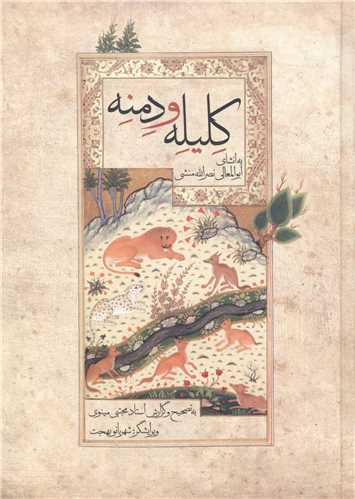 کلیله و دمنه
به انشای
ابوالمعالی نصرالله منشی
به تصحیح و گزارش استاد مجتبی مینوی
ویرایشگر: شهربانو بهجت